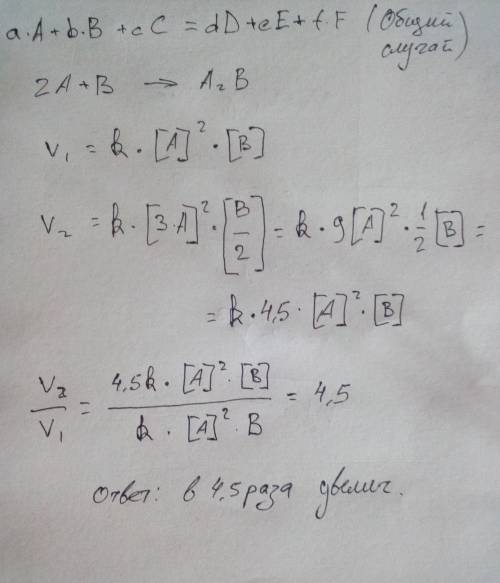 a·A + b·B + cC = dD + eE + f·F (Общий случай)
2A + B → A₂B
V₁ = k · [A]² · [B]
V₂ = k · [3·A]² · [B/2] = k · 9[A]² · 1/2 [B] =
= k · 4,5 · [A]² · [B]
V₂/V₁ = 4,5k · [A]² · [B] / k · [A]² · B = 4,5
Ответ: в 4,5 раза увелич.